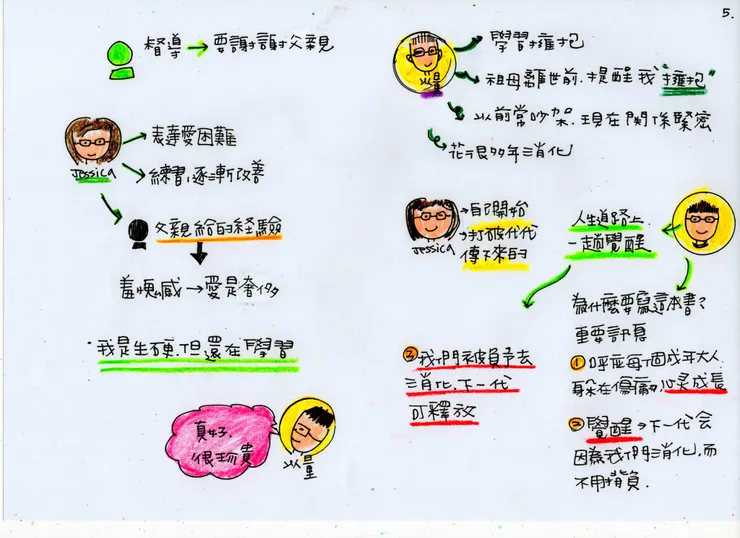 5.
督導 → 要謝謝父親
Jessica
表達愛困難
練習,逐漸改善
父親給的経驗
羞愧感 → 愛是奢侈
"我是生硬,但還在學習
真好,
很珍貴
以量
以量
學習擁抱
祖母離世前,提醒我"擁抱"
以前常吵架,現在関係緊密
花了很多年消化
Jessica
自己開始
打破代代
傳下來的
人生道路上
一趟覺醒
為什麼要寫這本書?
重要訊息
① 呼應每一個成年大人
躲在傷痛,心灵成長
② 覺醒 → 下一代会
因為我們消化,而
不用揹負.
③ 我們被賦予去
消化,下一代
可釋放